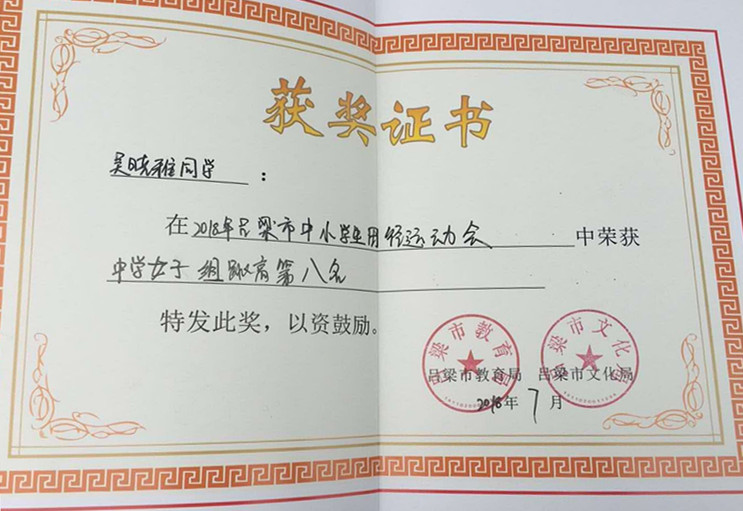 获奖证书
吴晓雅同学：
在2018年吕梁市中小学生田径运动会中荣获
中学女子组跳高第八名
特发此奖，以资鼓励。
吕梁市教育局 吕梁市文化局
吕梁市教育局 吕梁市文化局
2018年7月